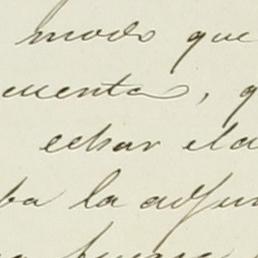 modo que
cuenta, q
echar el a
ba la adju